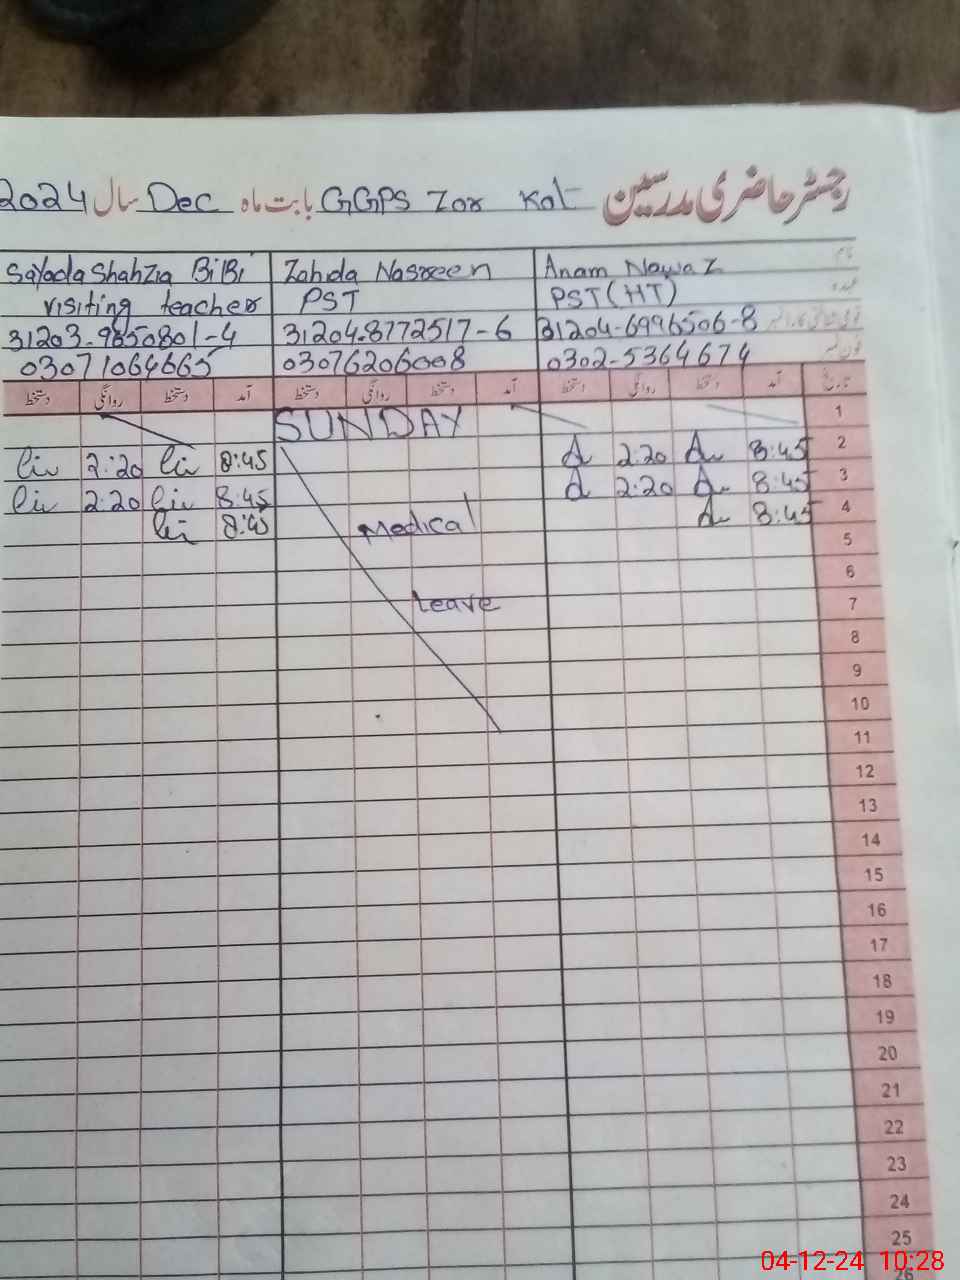 رجسٹر حاضری مدرسین GGPS Zor Kot بابت ماہ Dec سال 2024
نام Anam Nawaz Zahda Nasreen Sayada Shahzia BiBi
عہدہ PST (HT) PST visiting teacher
قومی شناختی کارڈ نمبر 31204-6996506-8 31204-8772517-6 31203-9850801-4
فون نمبر 0302-5364674 03076206008 03071064665
تاریخ آمد دستخط روانگی دستخط آمد دستخط روانگی دستخط آمد دستخط روانگی دستخط
1 SUNDAY
2 8:45 2:20 8:45 2:20
3 8:45 2:20 8:45 2:20
4 8:45 Medical 8:45
5
6
7 Leave
8
9
10
11
12
13
14
15
16
17
18
19
20
21
22
23
24
25
26
04-12-24 10:28